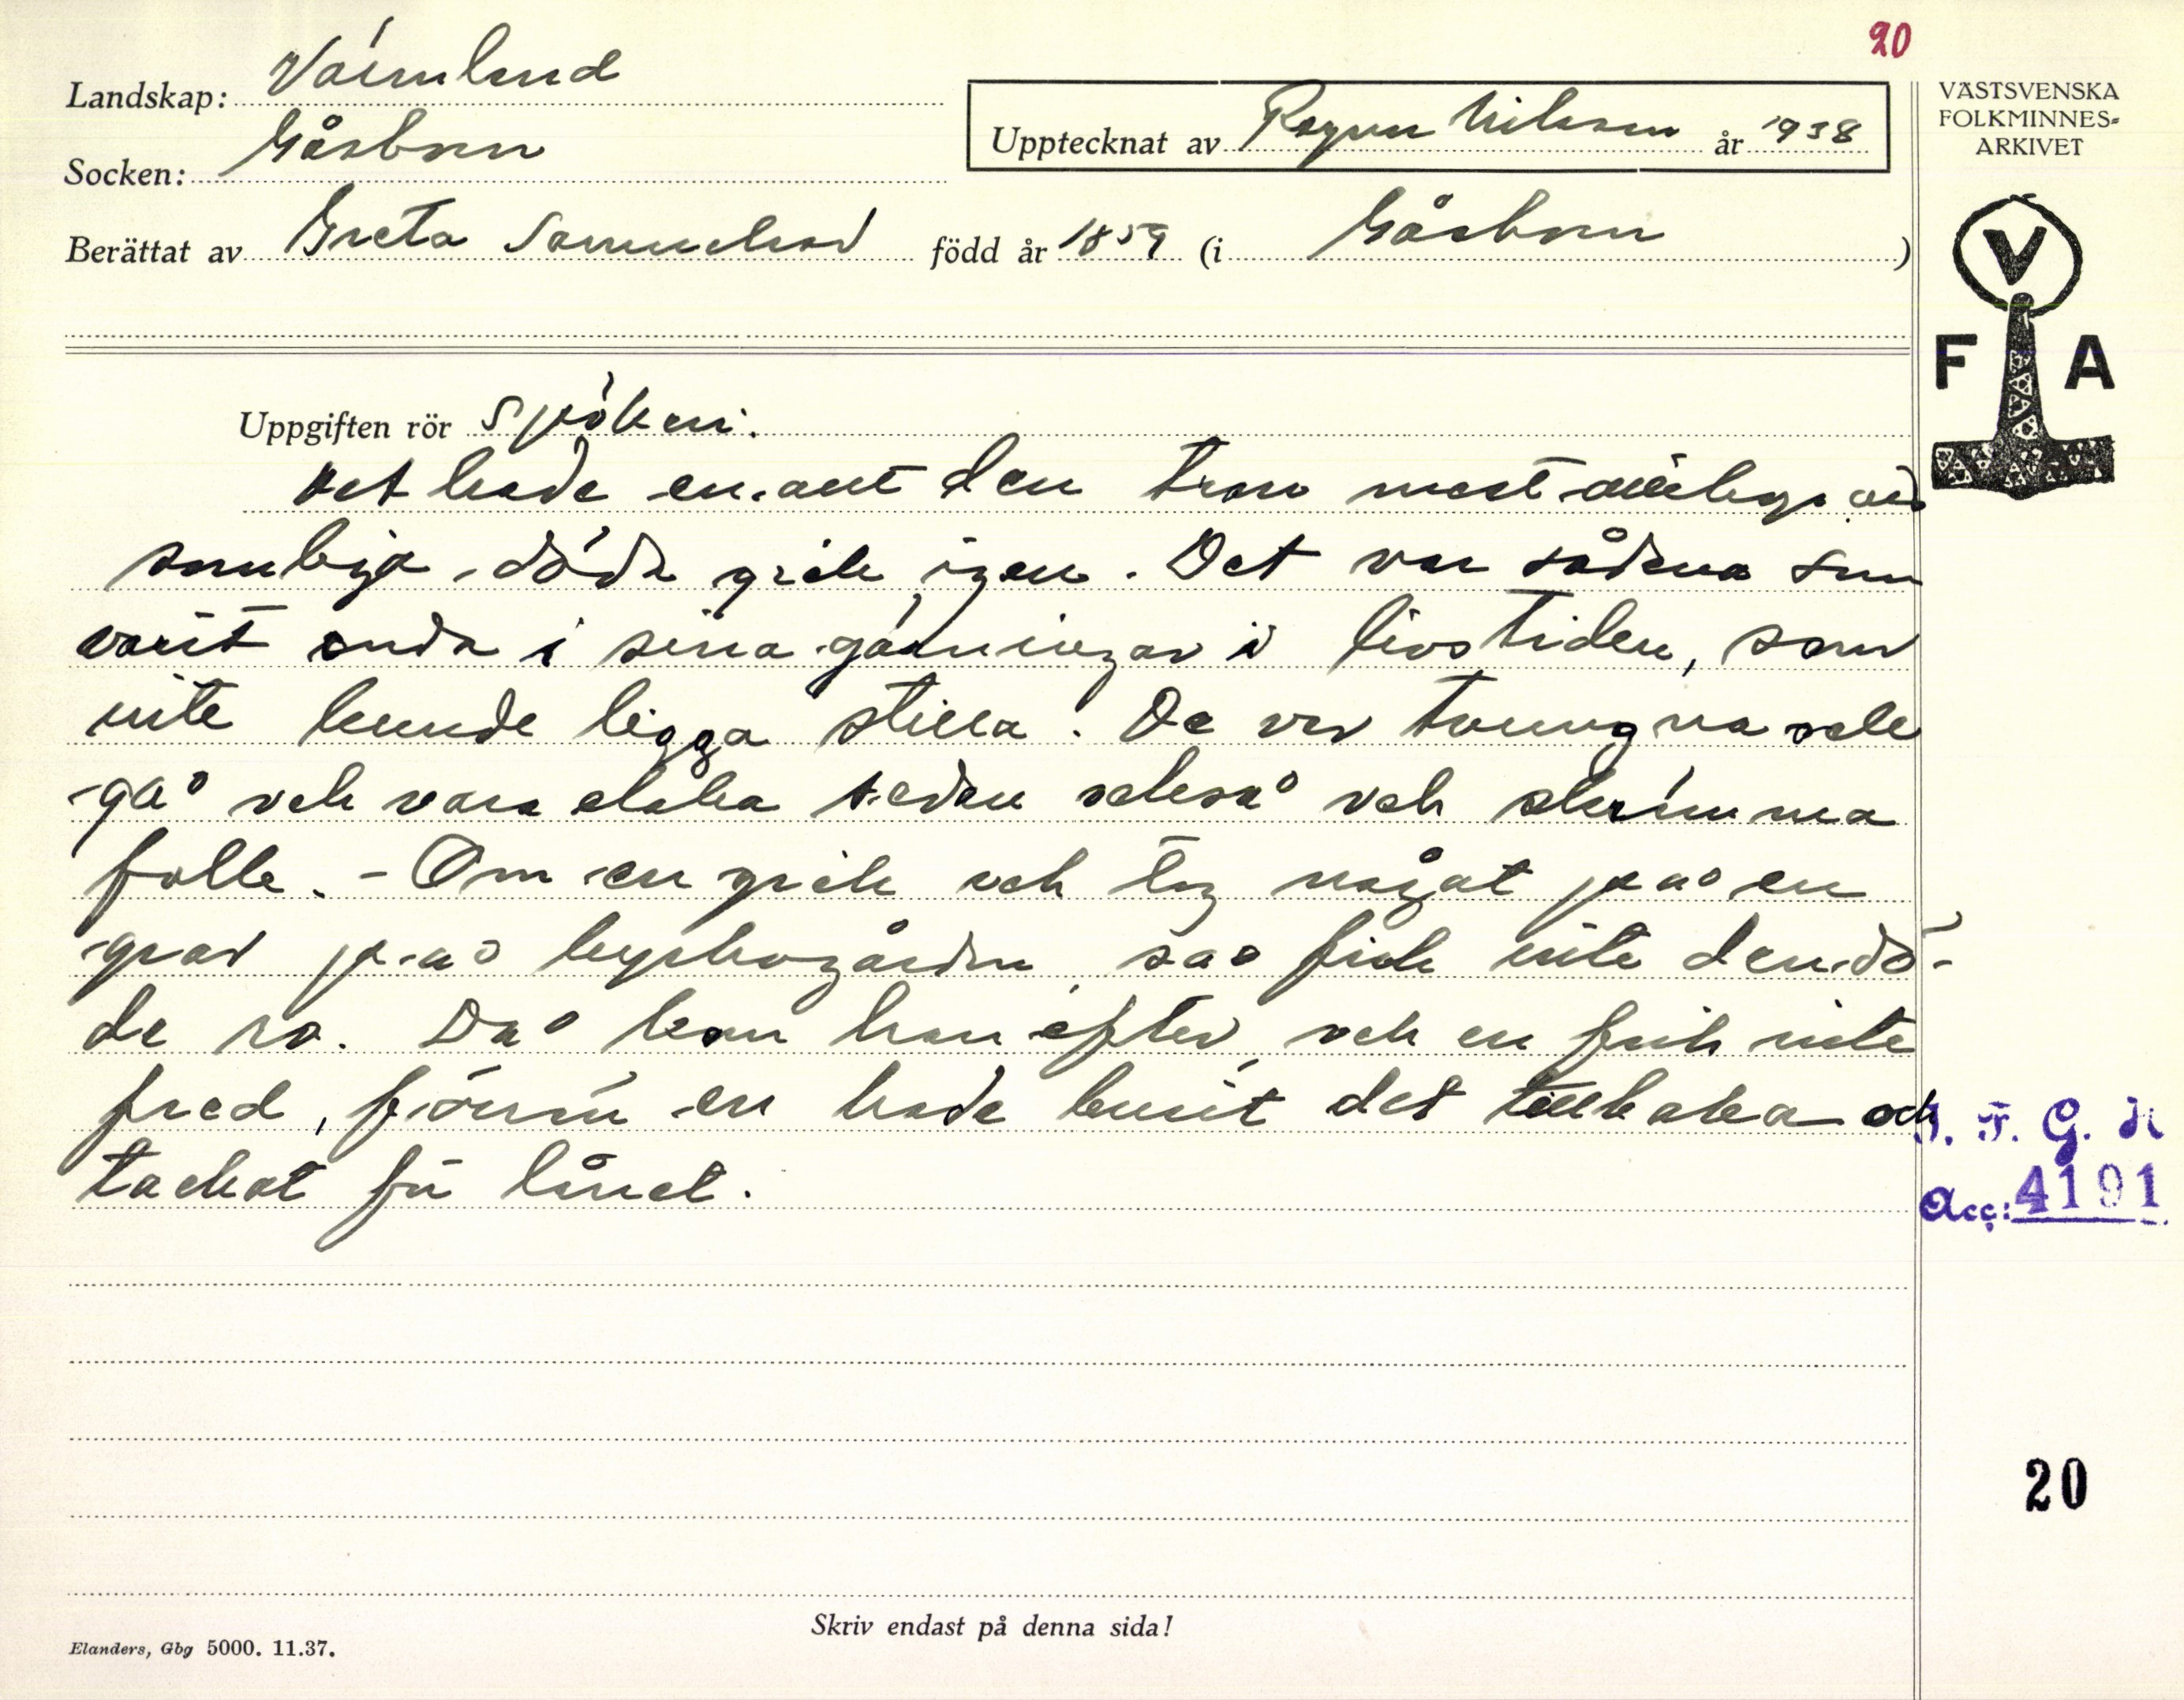 20
Landskap: Värmland
Socken: Gåsborn
Upptecknat av Ragnar Nilsson år 1938
Berättat av Greta Samuelsson född år 1859 (i Gåsborn)
VÄSTSVENSKA
FOLKMINNES-
ARKIVET
V
F A
Uppgiften rör spöken.
Det hade en.ant den tron mest allihopa att
somliga döda gick igen. Det var sådana som
varit onda i sina gärningar i livstiden, som
inte kunde ligga stilla. De var tvungna och
gå och vara elaka sedan också och skrämma
folk. - Om en gick och tog något på en
grav på kyrkogården, så fick inte den dö-
de ro. Då kom han efter, och en fick inte
fred, förrn en hade burit det tillbaka och
tackat för lånet.
I. F. G. H
Acc: 4191
20
Skriv endast på denna sida!
Elanders, Gbg 5000. 11.37.